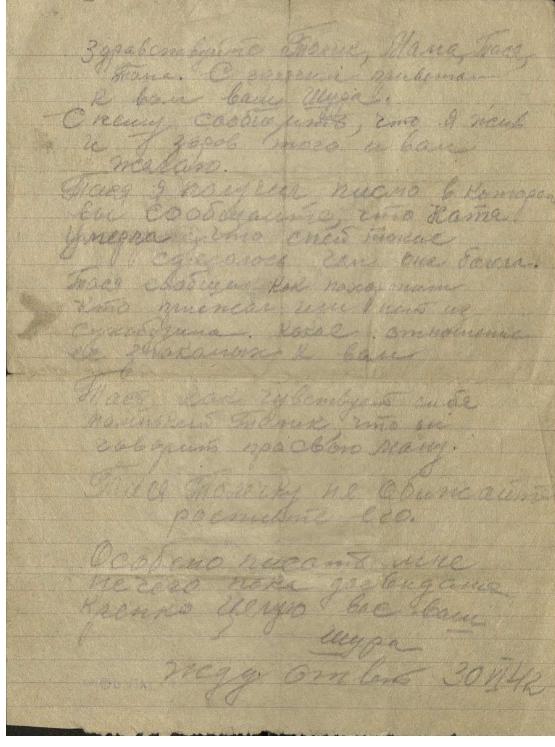 Здравствуйте Толик, Мама, Тася,
Тала. С горячим приветом
к вам ваш Шура.
Спешу сообщить, что я жив
и здоров того и вам
желаю.
Тася я получил писмо в котором
вы сообщаите, что Катя
умерла, что с ней такое
сделалось чем она болела.
Тася сообщи как похоронили
кто приежал или нет из
Сухобузима. какое отношение
знакомых к вам
Тася, как чувствует себя
маленький Толик, что он
говорит про свою маму.
Тася Толичку не обижайте
растите его.
Особено писать мне
нечего пока досвидание
крепко целую вас ваш
Шура
жду ответ 30 VI 42